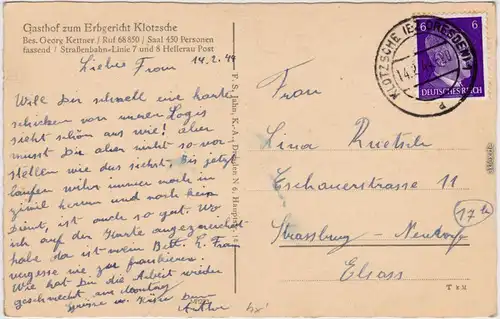 Gasthof zum Erbgericht Klotzsche
Bes. Georg Kettner / Ruf 68850 / Saal 450 Personen
fassend / Straßenbahn-Linie 7 und 8 Hellerau Post
14.2.44
Liebe Frau
Will Dir schnell eine Karte
schicken von unser Logis
sieht schön aus wie! aber
musst Dir aber nicht so vor
stellen wie das sichst, Bis jetz
laufen wihr immer noch in
zivil herum und noch kein
Dienst, ist auch so gut. Wo
ich auf der Karte angezeichnet
habe da ist mein Bett. L. Frau
vergesse wie zu frankieren.
Wie hat Dir die Arbeit wieder
geschmeckt am Montag
Grüsse u. Küsse Dein
Arthur
F. S. Jahn, K.-A., Dresden N 6, Hauptstr.
KLOTZSCHE (BZ. DRESDEN)
14.2.
d
6 6
DEUTSCHES REICH
Frau
Lina Ruetsch
Eschauerstrasse 11
Strassburg - Neudorf
Elsass
17b
T x M